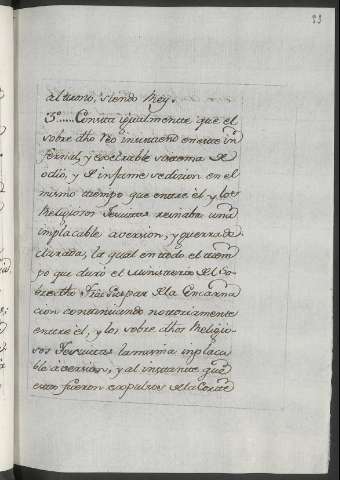 33
al trono, siendo Rey.
3º..... Consta igualmente que el
sobre dho Reo insistiendo en este in
fernal, y execrable sistema de
odio, y de infame sedicion en el
mismo tiempo que entre el y los
Religiosos Jesuitas reinaba una
implacable aversion, y guerra de
clarada, la qual en todo el tiem
po que duró el Ministerio del so
bre dho Frai Gaspar de la Encarna
cion continuando notoriamente
entre el, y los sobre dhos Religio-
sos Jesuitas la misma implaca
ble aversion, y al instante que
estos fueron expulsos de la Corte